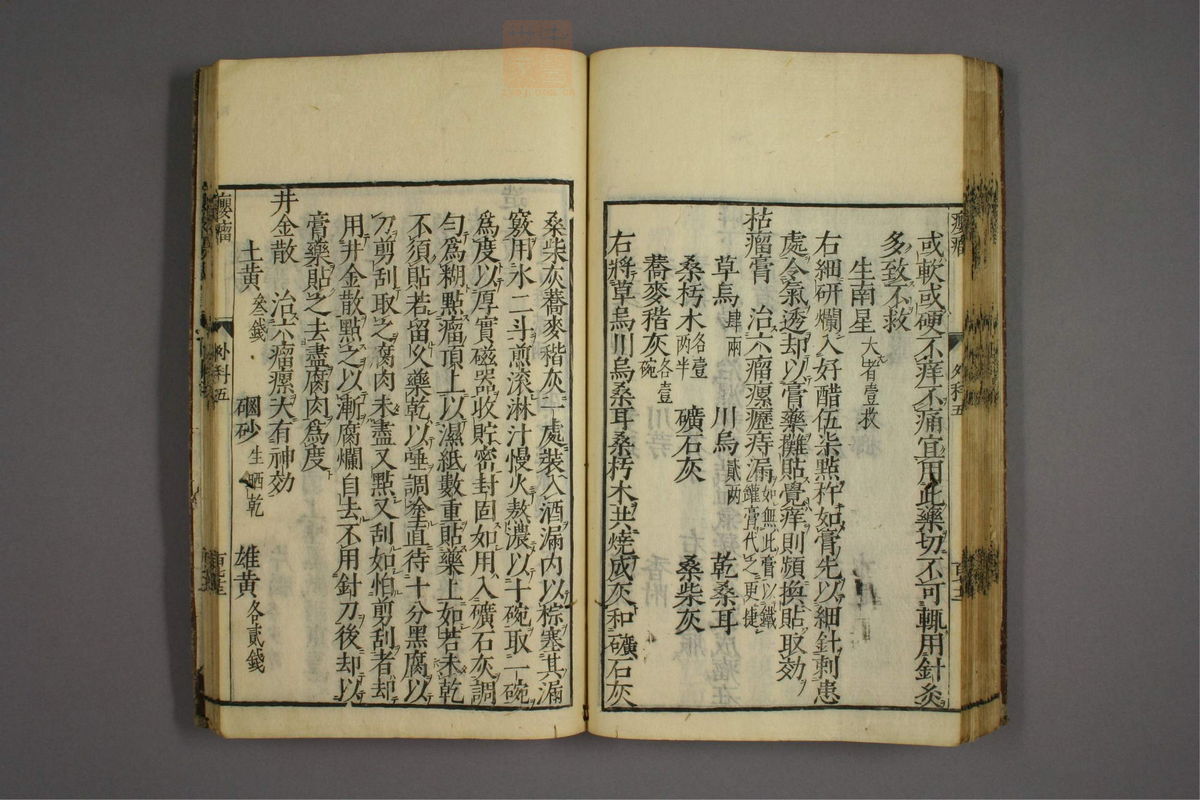 癭瘤
外科五
或軟或硬不痒不痛宜用此藥切不可輒用針灸
多致不救
生南星大者壹枚
右細研爛入好醋伍柒點杵如膏先以細針刺患
處令氣透却以膏藥攤貼覺痒則頻換貼取効
枯瘤膏 治六瘤瘰癧痔漏如無此膏以鐵鑵膏代之更捷
草烏肆兩 川烏貳兩 乾桑耳
桑朽木各壹兩半 礦石灰 桑柴灰
蕎麥稭灰各壹碗
右將草烏川烏桑耳桑朽木共燒成灰和礦石灰
桑柴灰蕎麥稭灰一處裝入酒漏內以棕塞其漏
竅用水二斗煎滾淋汁慢火熬濃以十碗取一碗
爲度以厚實磁器收貯密封固如用入礦石灰調
勻爲糊點瘤頂上以濕紙數重貼藥上如若未乾
不須貼若留久藥乾以唾調塗直待十分黑腐以
刀剪刮取之腐肉未盡又點又刮如怕剪刮者却
用井金散點之以漸腐爛自去不用針刀後却以
膏藥貼之去盡腐肉爲度
井金散 治六瘤瘰大有神効
土黃叁錢 硇砂生晒乾 雄黃各貳錢
癭瘤
外科五